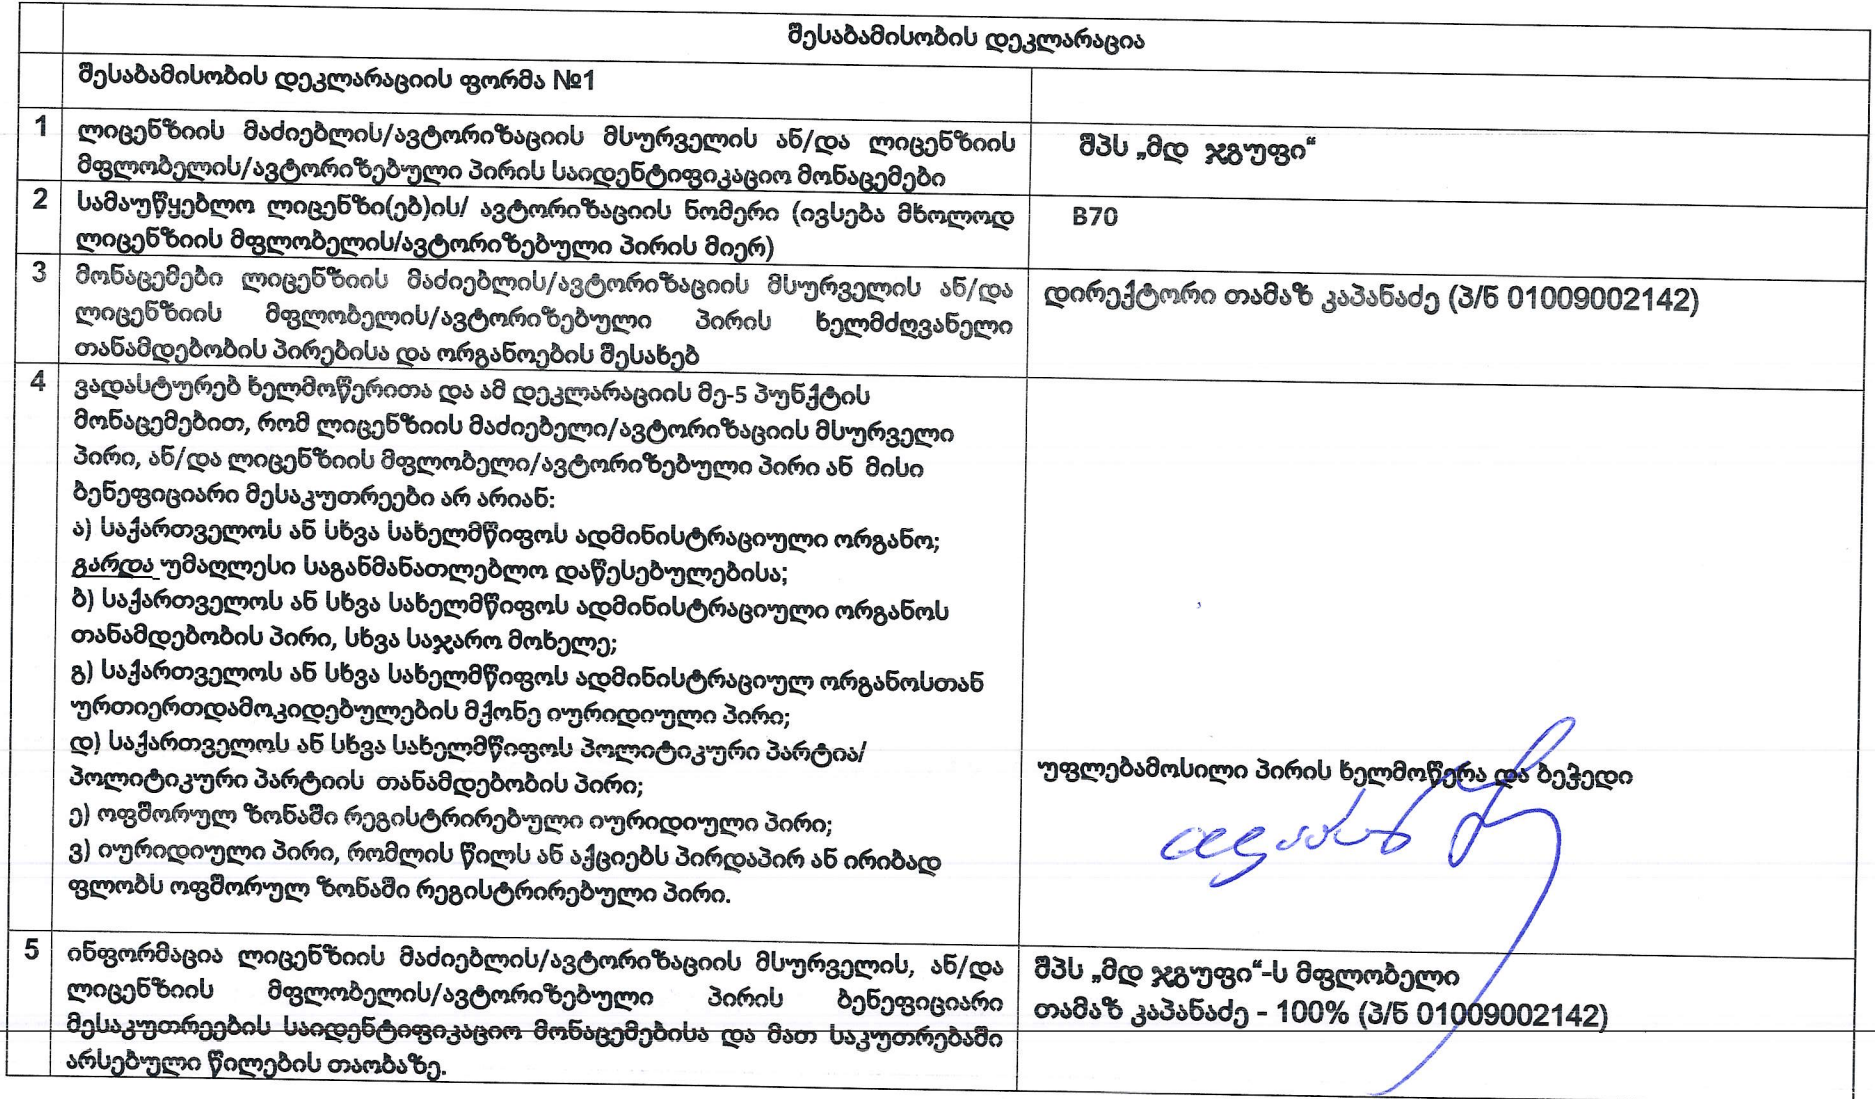 შესაბამისობის დეკლარაცია
შესაბამისობის დეკლარაციის ფორმა №1
1 ლიცენზიის მაძიებლის/ავტორიზაციის მსურველის ან/და ლიცენზიის
მფლობელის/ავტორიზებული პირის საიდენტიფიკაციო მონაცემები
შპს „მდ ჯგუფი“
2 სამაუწყებლო ლიცენზი(ებ)ის/ ავტორიზაციის ნომერი (ივსება მხოლოდ
ლიცენზიის მფლობელის/ავტორიზებული პირის მიერ)
B70
3 მონაცემები ლიცენზიის მაძიებლის/ავტორიზაციის მსურველის ან/და
ლიცენზიის მფლობელის/ავტორიზებული პირის ხელმძღვანელი
თანამდებობის პირებისა და ორგანოების შესახებ
დირექტორი თამაზ კაპანაძე (პ/ნ 01009002142)
4 ვადასტურებ ხელმოწერითა და ამ დეკლარაციის მე-5 პუნქტის
მონაცემებით, რომ ლიცენზიის მაძიებელი/ავტორიზაციის მსურველი
პირი, ან/და ლიცენზიის მფლობელი/ავტორიზებული პირი ან მისი
ბენეფიციარი მესაკუთრეები არ არიან:
ა) საქართველოს ან სხვა სახელმწიფოს ადმინისტრაციული ორგანო;
გარდა უმაღლესი საგანმანათლებლო დაწესებულებისა;
ბ) საქართველოს ან სხვა სახელმწიფოს ადმინისტრაციული ორგანოს
თანამდებობის პირი, სხვა საჯარო მოხელე;
გ) საქართველოს ან სხვა სახელმწიფოს ადმინისტრაციულ ორგანოსთან
ურთიერთდამოკიდებულების მქონე იურიდიული პირი;
დ) საქართველოს ან სხვა სახელმწიფოს პოლიტიკური პარტია/
პოლიტიკური პარტიის თანამდებობის პირი;
ე) ოფშორულ ზონაში რეგისტრირებული იურიდიული პირი;
ვ) იურიდიული პირი, რომლის წილს ან აქციებს პირდაპირ ან ირიბად
ფლობს ოფშორულ ზონაში რეგისტრირებული პირი.
უფლებამოსილი პირის ხელმოწერა და ბეჭედი
5 ინფორმაცია ლიცენზიის მაძიებლის/ავტორიზაციის მსურველის, ან/და
ლიცენზიის მფლობელის/ავტორიზებული პირის ბენეფიციარი
მესაკუთრეების საიდენტიფიკაციო მონაცემებისა და მათ საკუთრებაში
არსებული წილების თაობაზე.
შპს „მდ ჯგუფი“-ს მფლობელი
თამაზ კაპანაძე - 100% (პ/ნ 01009002142)